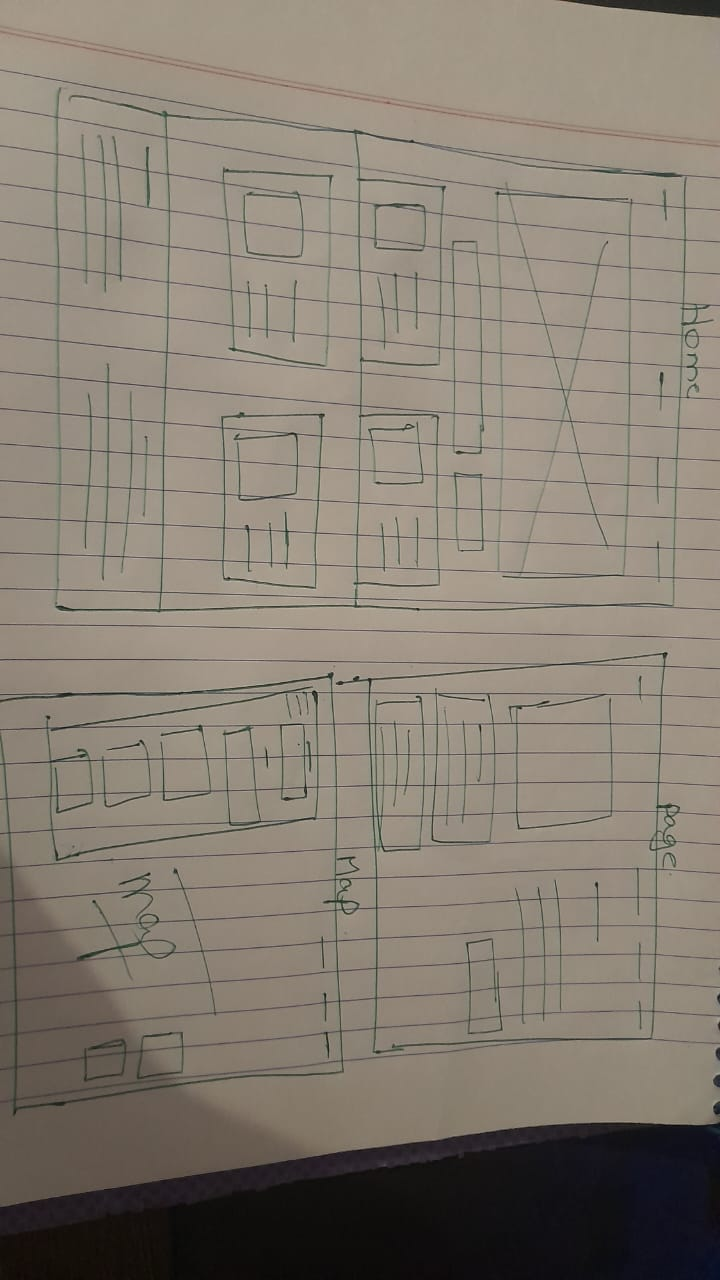 Home
Page.
Map
Map